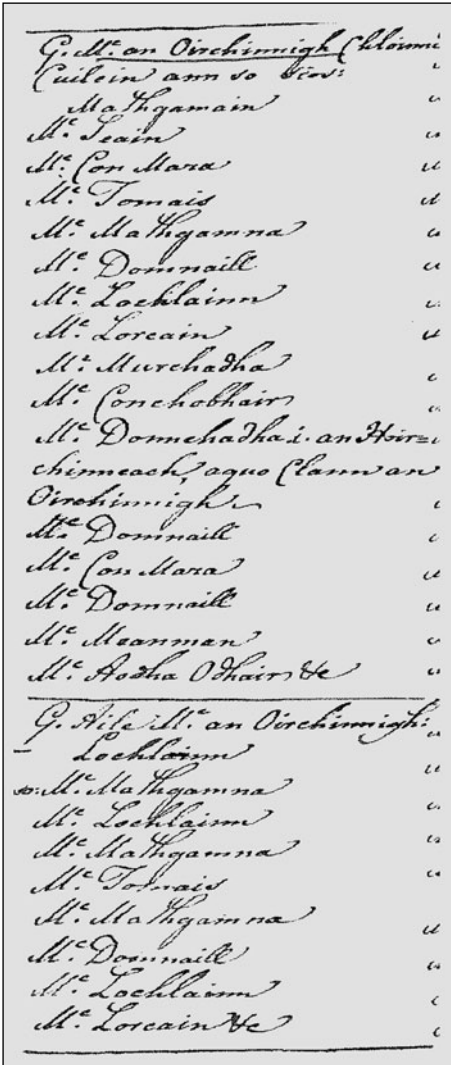 G. Mc. an Oirchinnigh Chloinne
Cuilein ann so sios:
Mathgamain
Mc. Seain
Mc. Con Mara
Mc. Tomais
Mc. Mathgamna
Mc. Domnaill
Mc. Lochlainn
Mc. Lorcain
Mc. Murchadha
Mc. Conchobhair
Mc. Donnchadha .i. an Hoir=
chinneach, aquo Clann an
Oirchinnigh
Mc. Domnaill
Mc. Con Mara
Mc. Domnaill
Mc. Meanman
Mc. Aodha Odhair &c
G. Aile Mc. an Oirchinnigh:
Lochlainn
Mc. Mathgamna
Mc. Lochlainn
Mc. Mathgamna
Mc. Tomais
Mc. Mathgamna
Mc. Domnaill
Mc. Lochlainn
Mc. Lorcain &c